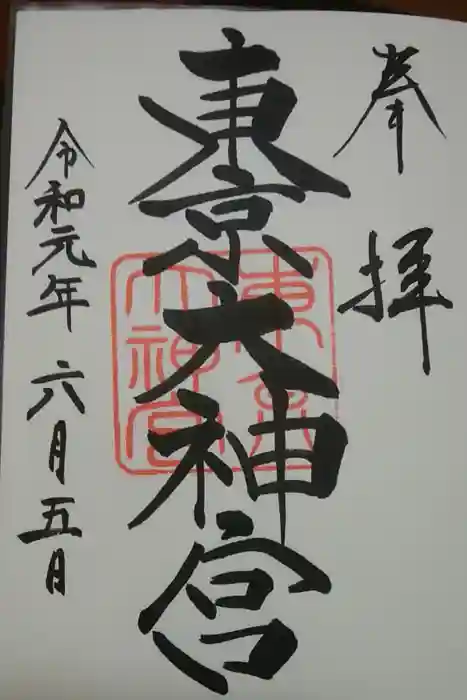 奉拝
東京大神宮
東京大神宮
令和元年六月五日